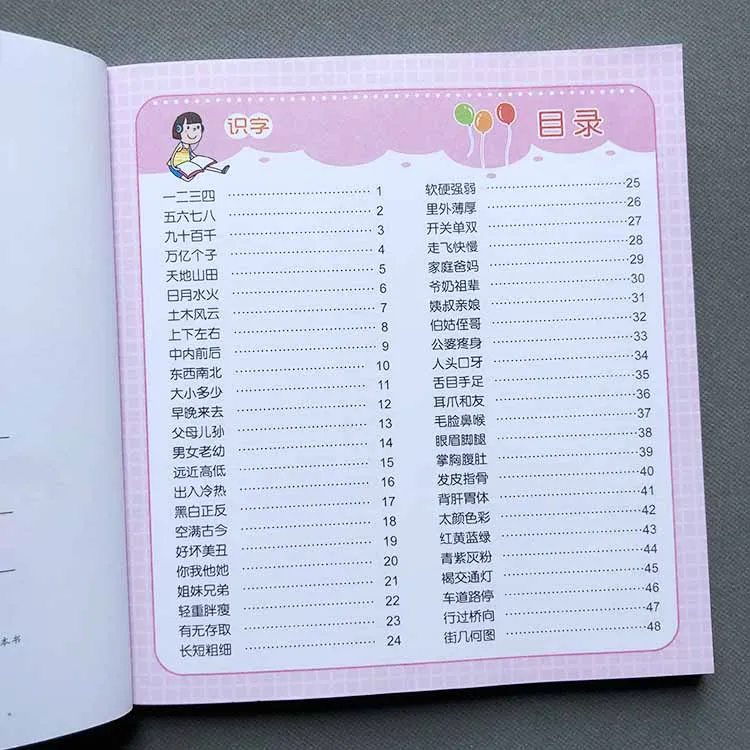 识字
目录
一二三四 1
五六七八 2
九十百千 3
万亿个子 4
天地山田 5
日月水火 6
土木风云 7
上下左右 8
中内前后 9
东西南北 10
大小多少 11
早晚来去 12
父母儿孙 13
男女老幼 14
远近高低 15
出入冷热 16
黑白正反 17
空满古今 18
好坏美丑 19
你我他她 20
姐妹兄弟 21
轻重胖瘦 22
有无存取 23
长短粗细 24
软硬强弱 25
里外薄厚 26
开关单双 27
走飞快慢 28
家庭爸妈 29
爷奶祖辈 30
姨叔亲娘 31
伯姑侄哥 32
公婆疼身 33
人头口牙 34
舌目手足 35
耳爪和友 36
毛脸鼻喉 37
眼眉脚腿 38
掌胸腹肚 39
发皮指骨 40
背肝胃体 41
太颜色彩 42
红黄蓝绿 43
青紫灰粉 44
褐交通灯 45
车道路停 46
行过桥向 47
街几何图 48
本书